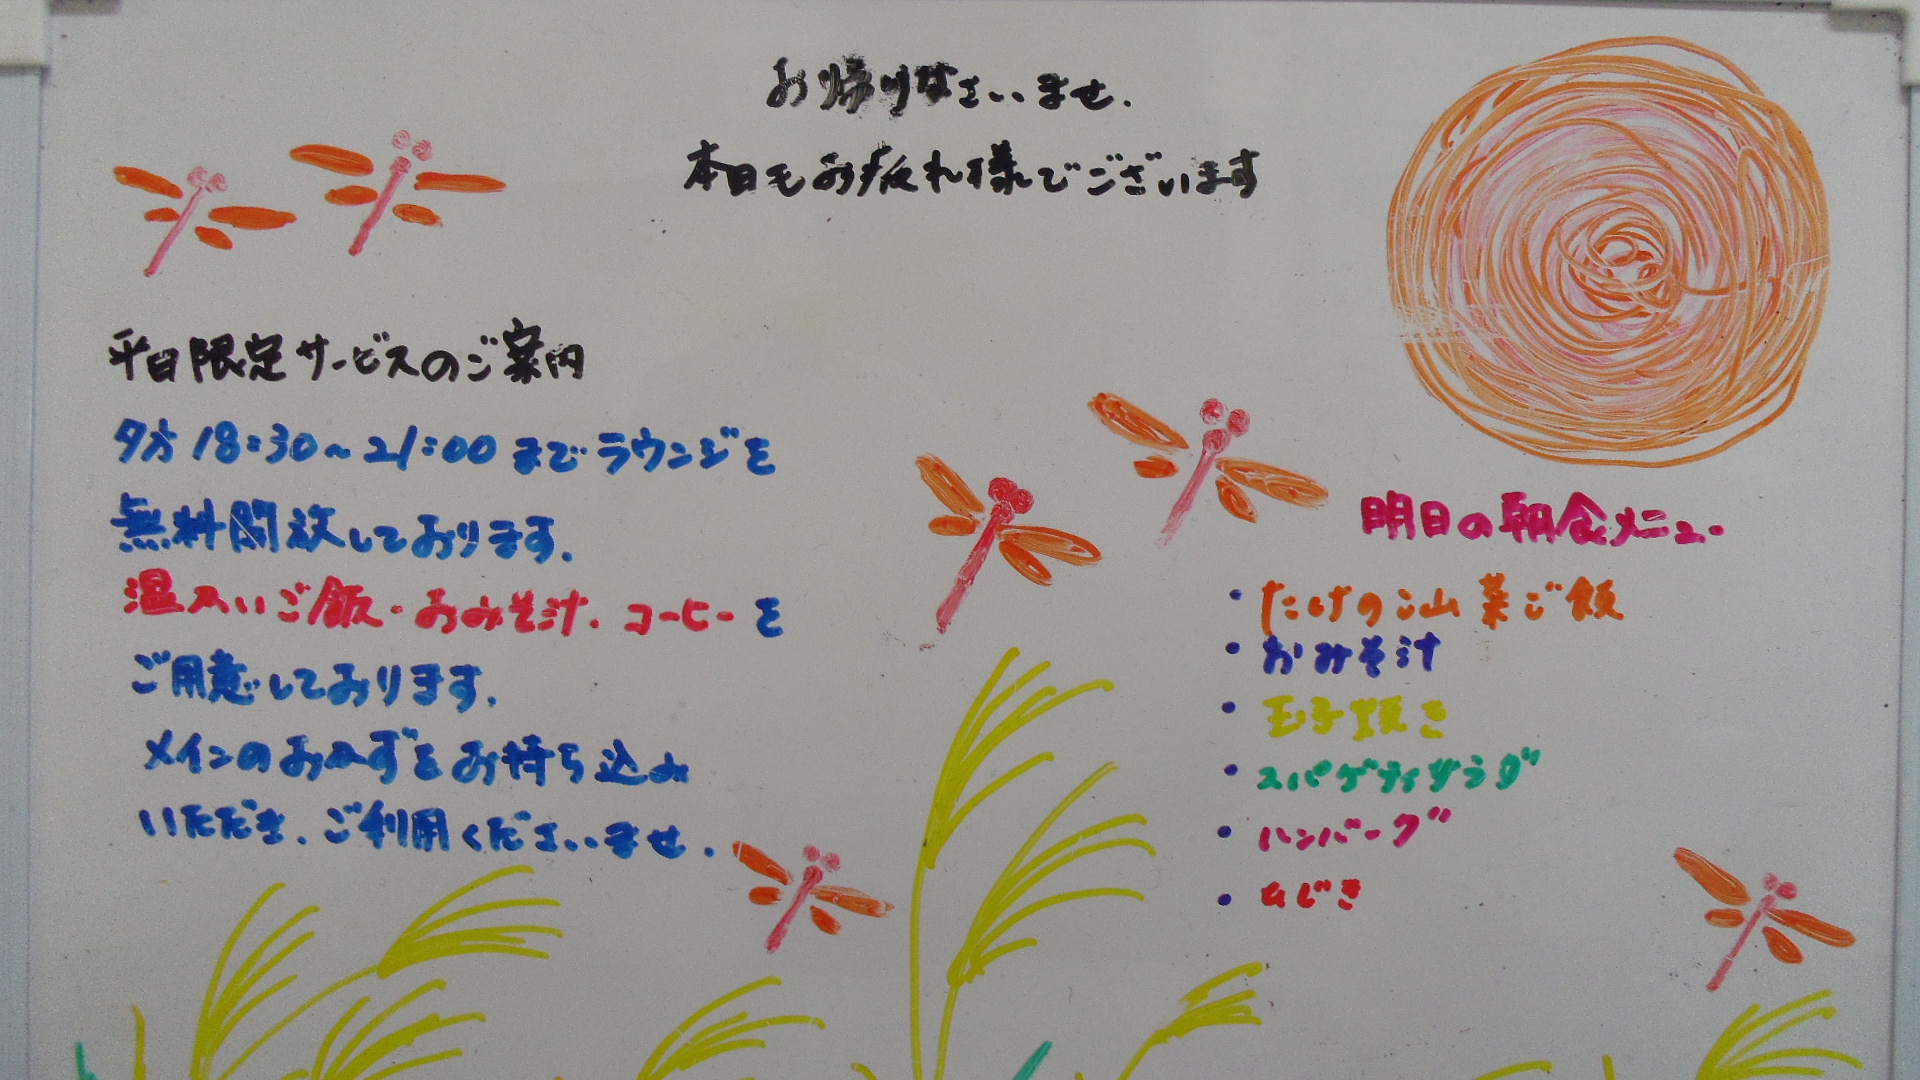 お帰りなさいませ.
本日もお疲れ様でございます
平日限定サービスのご案内
夕方 18:30～21:00 までラウンジを
無料開放しております.
温かいご飯・おみそ汁. コーヒー を
ご用意しております.
メインのおかずをお持ち込み
いただき. ご利用くださいませ.
明日の朝食メニュー
・たけのこ山菜ご飯
・おみそ汁
・玉子焼き
・スパゲティサラダ
・ハンバーグ
・ひじき